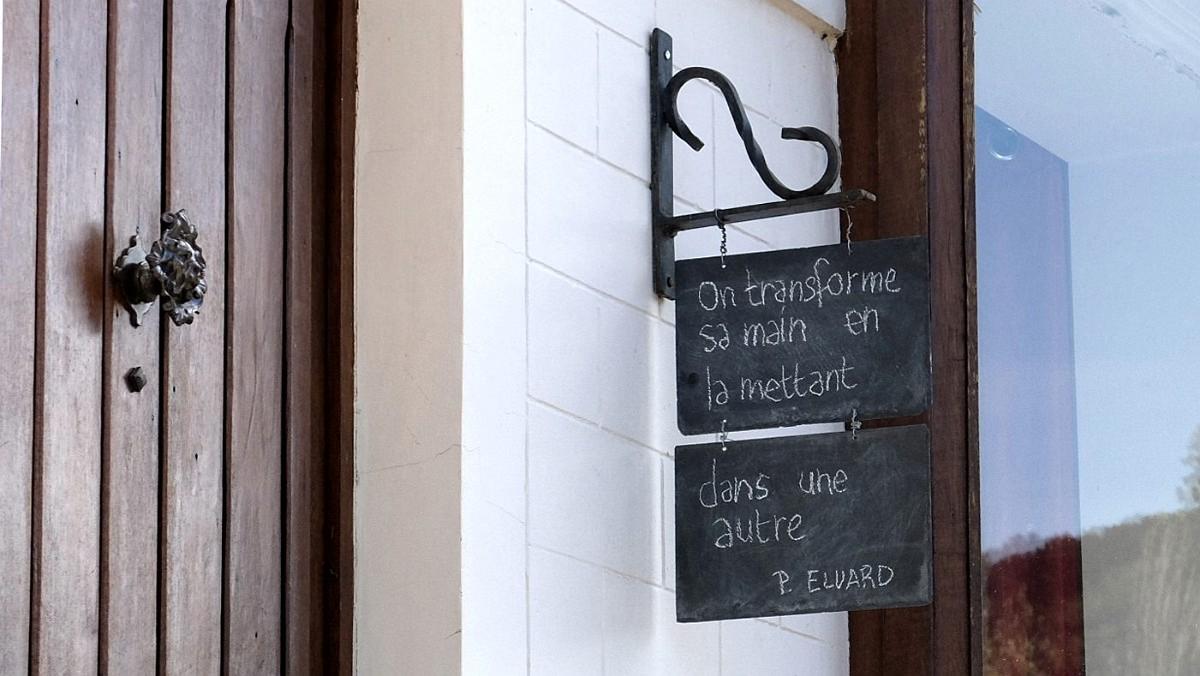 On transforme
sa main en
la mettant
dans une
autre
P. ELUARD